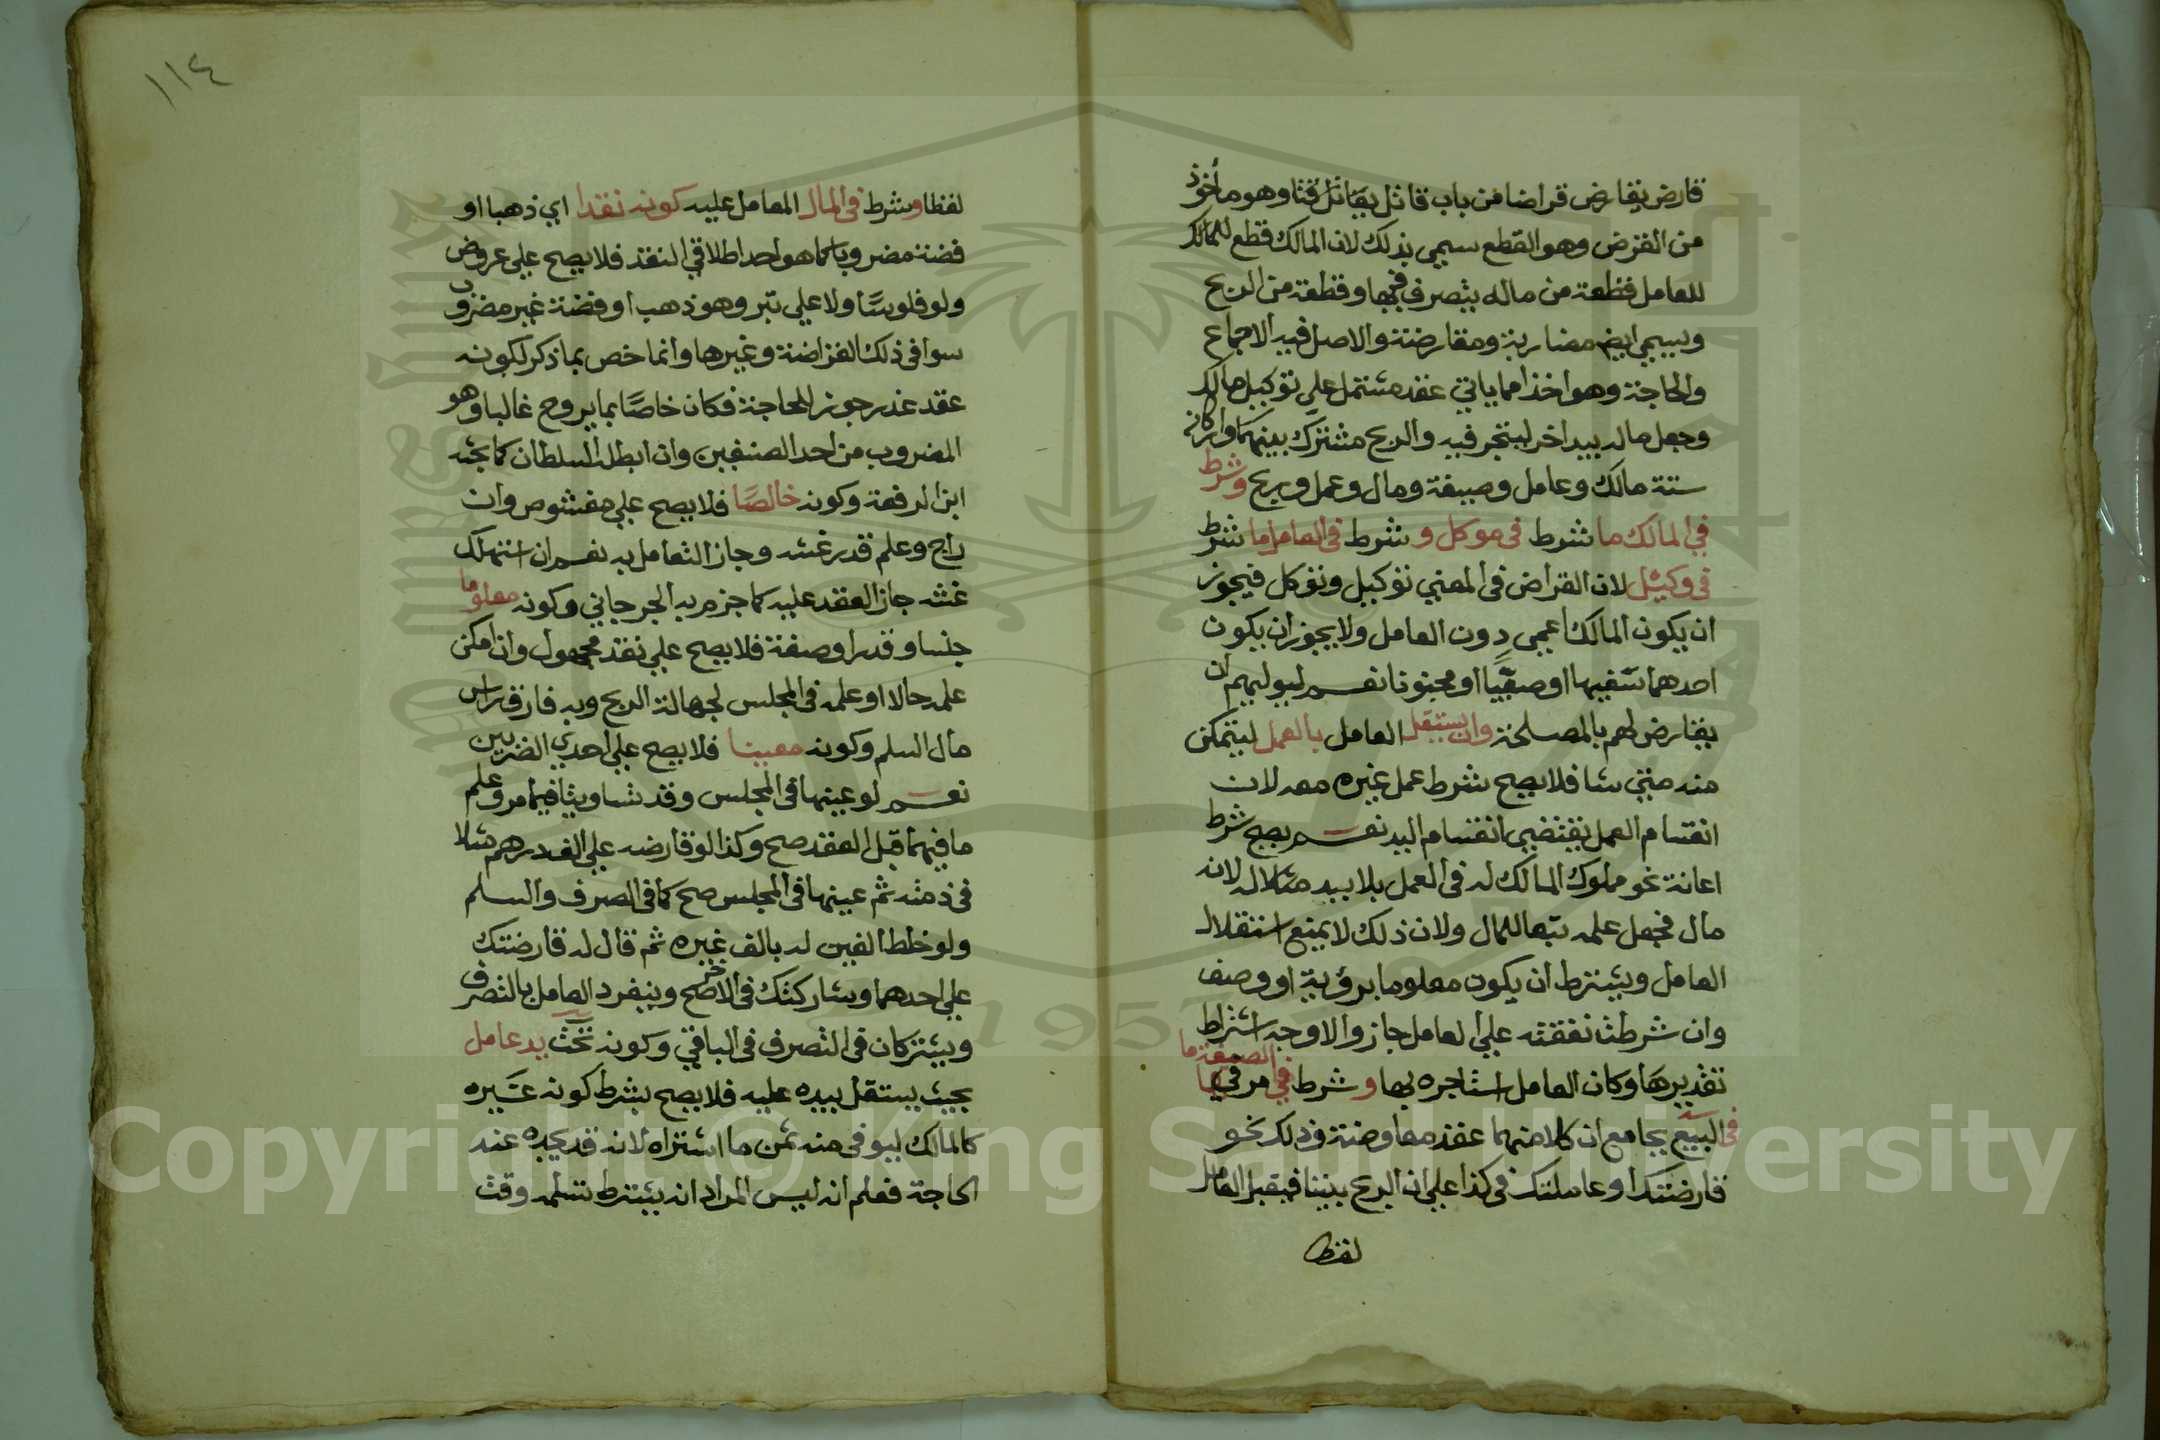 قارض يقارض قراضا من باب قاتل يقاتل قتا وهو ماخوذ
من القرض وهو القطع سمي بذلك لان المالك قطع للمالك
للعامل قطعة من ماله يتصرف فيها وقطعة من الربح
ويسمي ايض مضاربة ومقارضة والاصل فيه الاجماع
والحاجة وهو اخذا مما ياتي عقد مشتمل علي توكيل مالك
وجعل ماله بيد اخر ليتجر فيه والربح مشترك بينهما واركانه
ستة مالك وعامل وصيغة ومال وعمل وربح وشرط
في المالك ما شرط في موكل و شرط في العامل ما شرط
في وكيل لان القراض في المعني توكيل وتوكل فيجوز
ان يكون المالك اعمي دون العامل ولا يجوز ان يكون
احدهما سفيها او صبيا او مجنونا نعم لوليهم ان
يقارض لهم بالمصلحة وان يستقل العامل بالعمل ليتمكن
منه متي شا فلا يصح شرط عمل غيره معه لان
انقسام العمل يقتضي انقسام اليد نعم يصح شرط
اعانة نحو مملوك المالك له في العمل بلا يد مثلا له لانه
مال فجعل علمه تبعا للمال ولان ذلك لا يمنع استقلال
العامل ويشترط ان يكون معلوما برؤية او وصف
وان شرطت نفقته علي العامل جاز والاوجه اشتراط
تقديرها وكان العامل استاجره بها و شرط في الصيغة ما مر فيها
في البيع بجامع ان كلا منهما عقد معاوضة وذلك نحو
قارضتك او عاملتك في كذا علي ان الربح بيننا فيقبل العامل
لفظا
١١٤
لفظا وشرط في المال المعامل عليه كونه نقدا اي ذهبا او
فضة مضروبا كما هو احد اطلاقي النقد فلا يصح علي عروض
ولو فلوسا ولا علي تبر وهو ذهب او فضة غير مضروب
سوا في ذلك القراضة وغيرها وانما خص بما ذكر لكونه
عقد غرر جوز للحاجة فكان خاصا بما يروج غالبا وهو
المضروب من احد الصنفين وان ابطله السلطان كما بحثه
ابن الرفعة وكونه خالصا فلا يصح علي مغشوش وان
راج وعلم قدر غشه وجاز التعامل به نعم ان استهلك
غشه جاز العقد عليه كما جزم به الجرجاني وكونه معلوما
جنسا وقدرا وصفة فلا يصح علي نقد مجهول وان امكن
علمه حالا او علمه في المجلس لجهالة الربح وبه فارق راس
مال السلم وكونه معينا فلا يصح علي احدي الضربين
نعم لو عينها في المجلس وقد تساويتا فيما مر وعلم
ما فيهما قبل العقد صح وكذا لو قارضه علي الف درهم مثلا
في ذمته ثم عينها في المجلس صح كما في الصرف والسلم
ولو خلط الفين له بالف غيره ثم قال له قارضتك
علي احدهما وشاركتك في الاخر صح وينفرد العامل بالتصرف
ويشتركان في التصرف في الباقي وكونه تحت يد عامل
بحيث يستقل بيده عليه فلا يصح بشرط كونه غيره
كالمالك ليوفي منه ثمن ما اشتراه لانه قد يجده عند
الحاجة فعلم انه ليس المراد انه يشترط تسلمه وقت
Copyright © King Saud University
1957